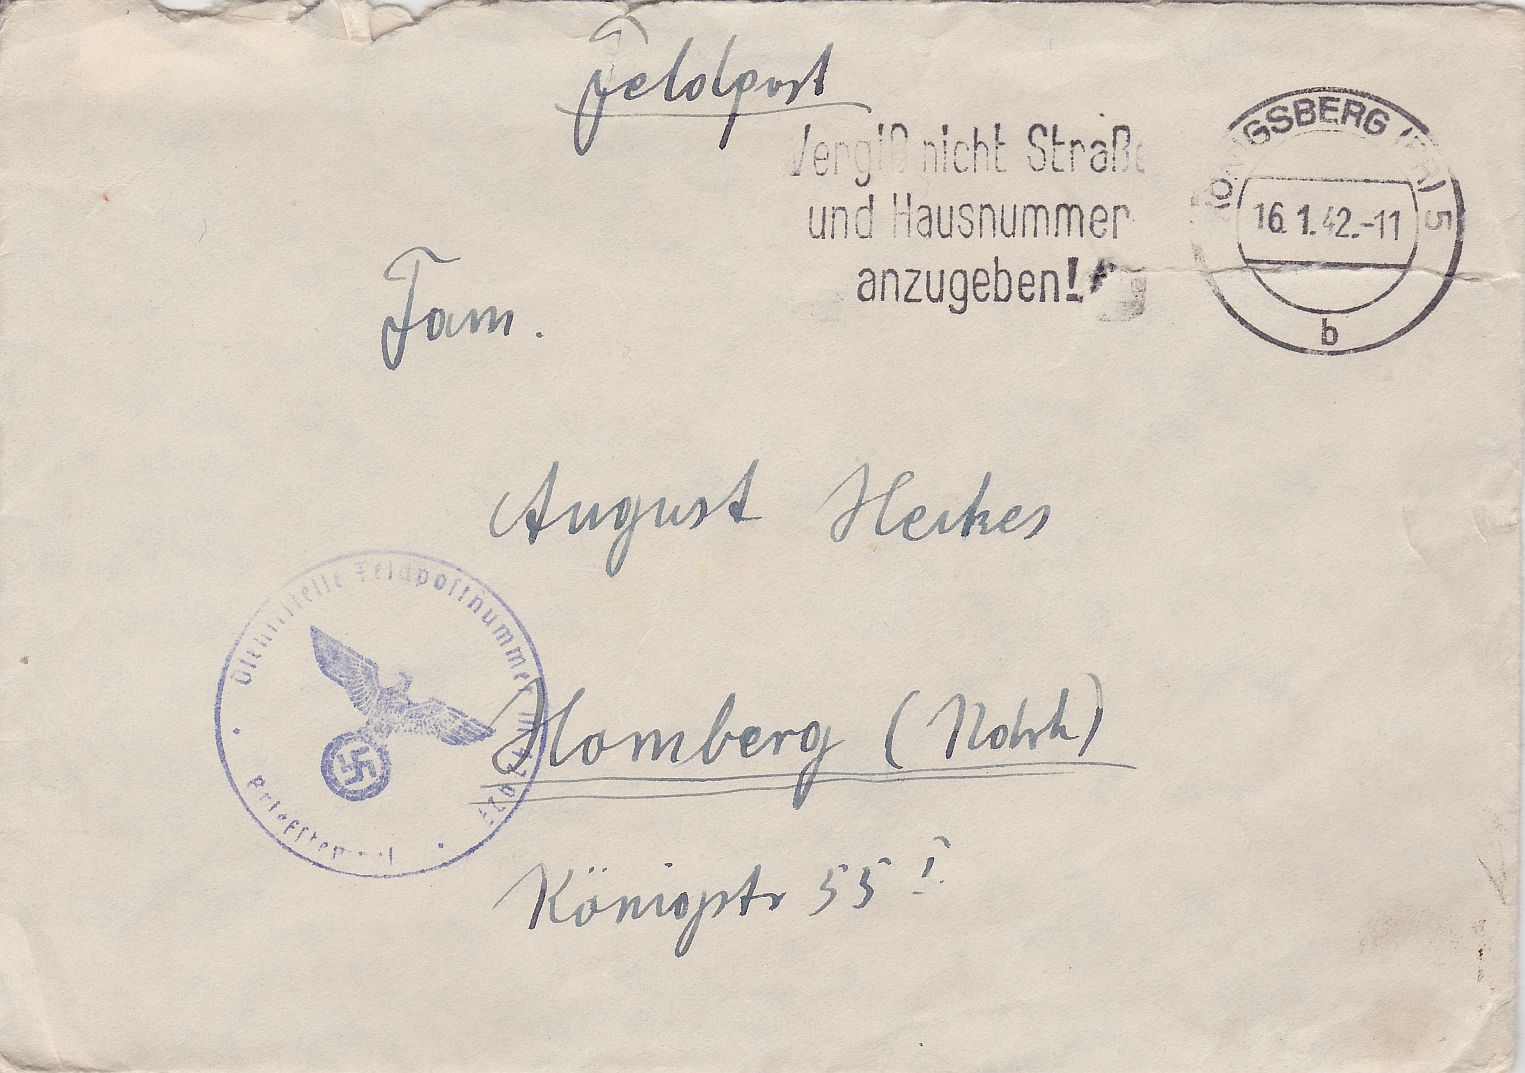 Feldpost
Vergiß nicht Straße
und Hausnummer
anzugeben!
KÖNIGSBERG (PR) 5
16.1.42.-11
b
Fam.
August Heckes
Dienststelle Feldpostnummer
Briefstempel
Homberg (Ndrh)
Königstr 55 I.